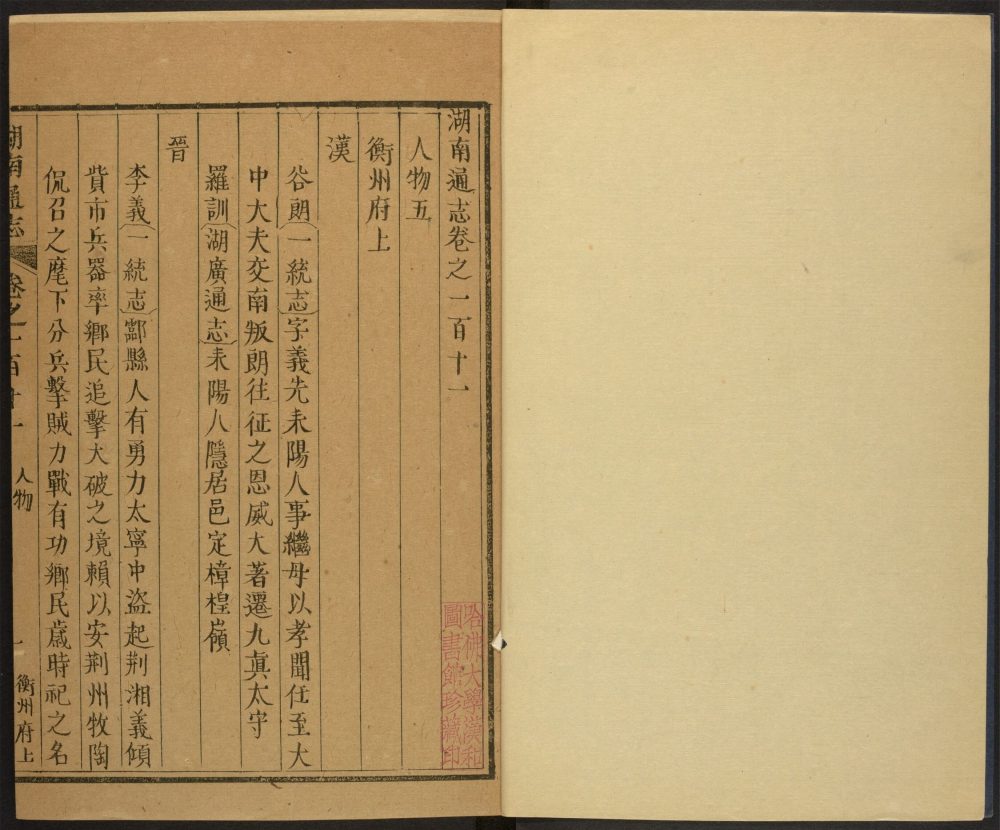 湖南通志卷之一百十一
人物五
衡州府上
漢
谷朗一統志字義先耒陽人事繼母以孝聞任至大
中大夫交南叛朗往征之恩威大著遷九真太守
羅訓湖廣通志耒陽人隱居邑定樟楻嶺
晉
李義一統志酃縣人有勇力太寧中盜起荆湘義傾
貲市兵器率鄉民追擊大破之境賴以安荆州牧陶
侃召之麾下分兵擊賊力戰有功鄉民歲時祀之名
湖南通志 卷之一百十一 人物 一 衡州府上
哈佛大學漢和
圖書館珍藏印